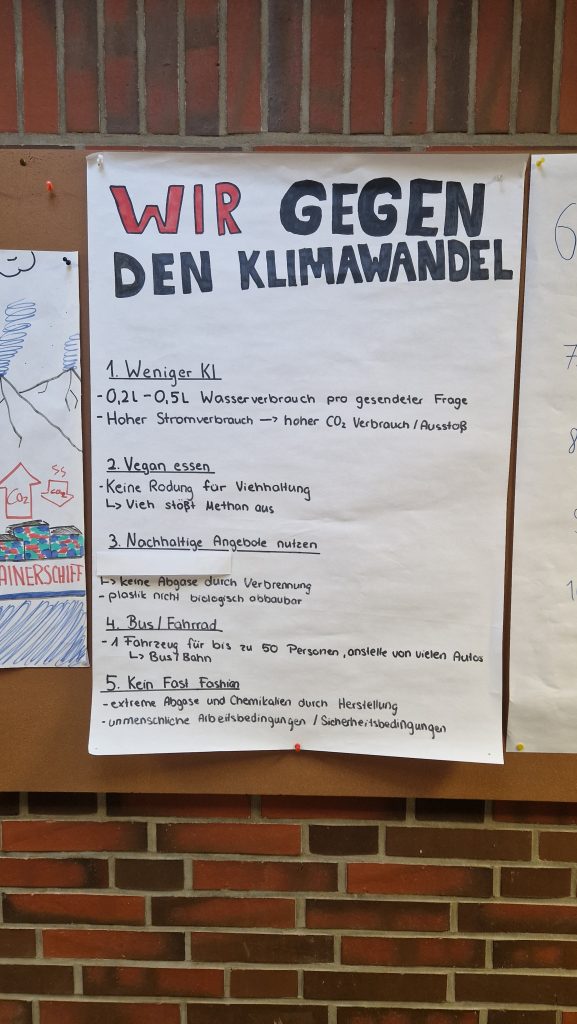 WIR GEGEN
DEN KLIMAWANDEL
1. Weniger KI
- 0,2L - 0,5L Wasserverbrauch pro gesendeter Frage
- Hoher Stromverbrauch → hoher CO₂ Verbrauch / Ausstoß
2. Vegan essen
- Keine Rodung für Viehhaltung
↳ Vieh stößt Methan aus
3. Nachhaltige Angebote nutzen
↳ keine Abgase durch Verbrennung
- plastik nicht biologisch abbaubar
4. Bus / Fahrrad
- 1 Fahrzeug für bis zu 50 Personen, anstelle von vielen Autos
↳ Bus / Bahn
5. Kein Fast Fashion
- extreme Abgase und Chemikalien durch Herstellung
- unmenschliche Arbeitsbedingungen / Sicherheitsbedingungen
CO₂
CO₂
AINERSCHIFF
6
7
8